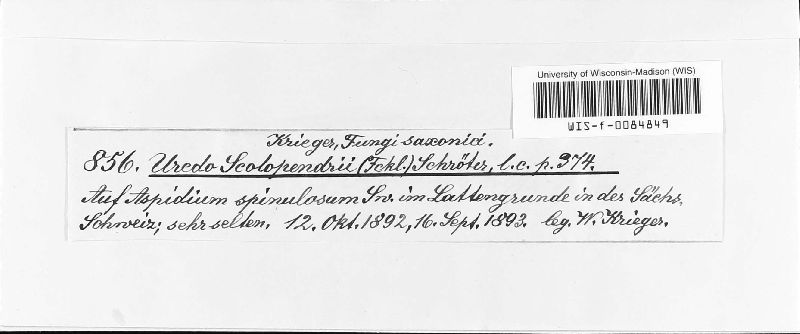 University of Wisconsin-Madison (WIS)
WIS-f-0084849
Krieger, Fungi saxonici.
856. Uredo Scolopendrii (Fckl.) Schröter, l. c. p. 374.
Auf Aspidium spinulosum Sw. im Lattengrunde in der Sächs.
Schweiz; sehr selten. 12. Okt. 1892, 16. Sept. 1893. leg. W. Krieger.